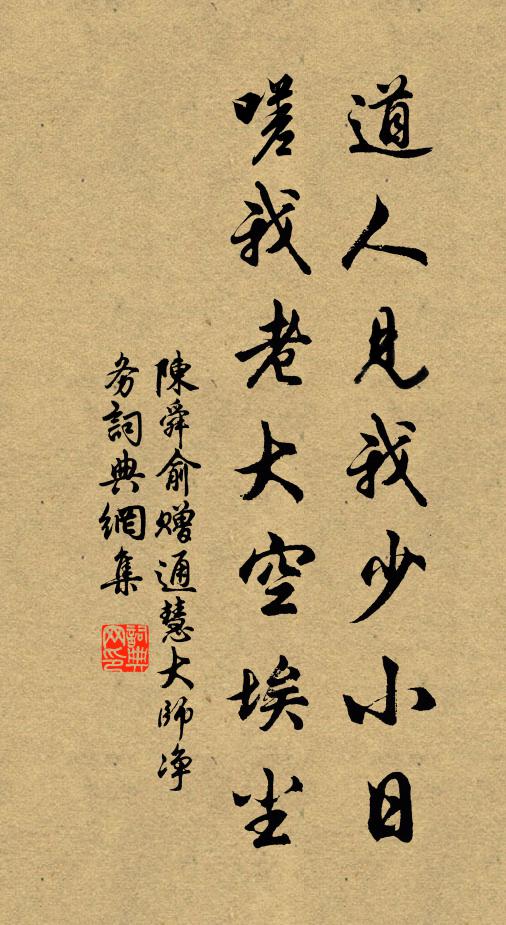 道人見我少小日
嗟我老大空埃尘
陳舜俞贈通慧大師净
务詞典網集
詞典网印